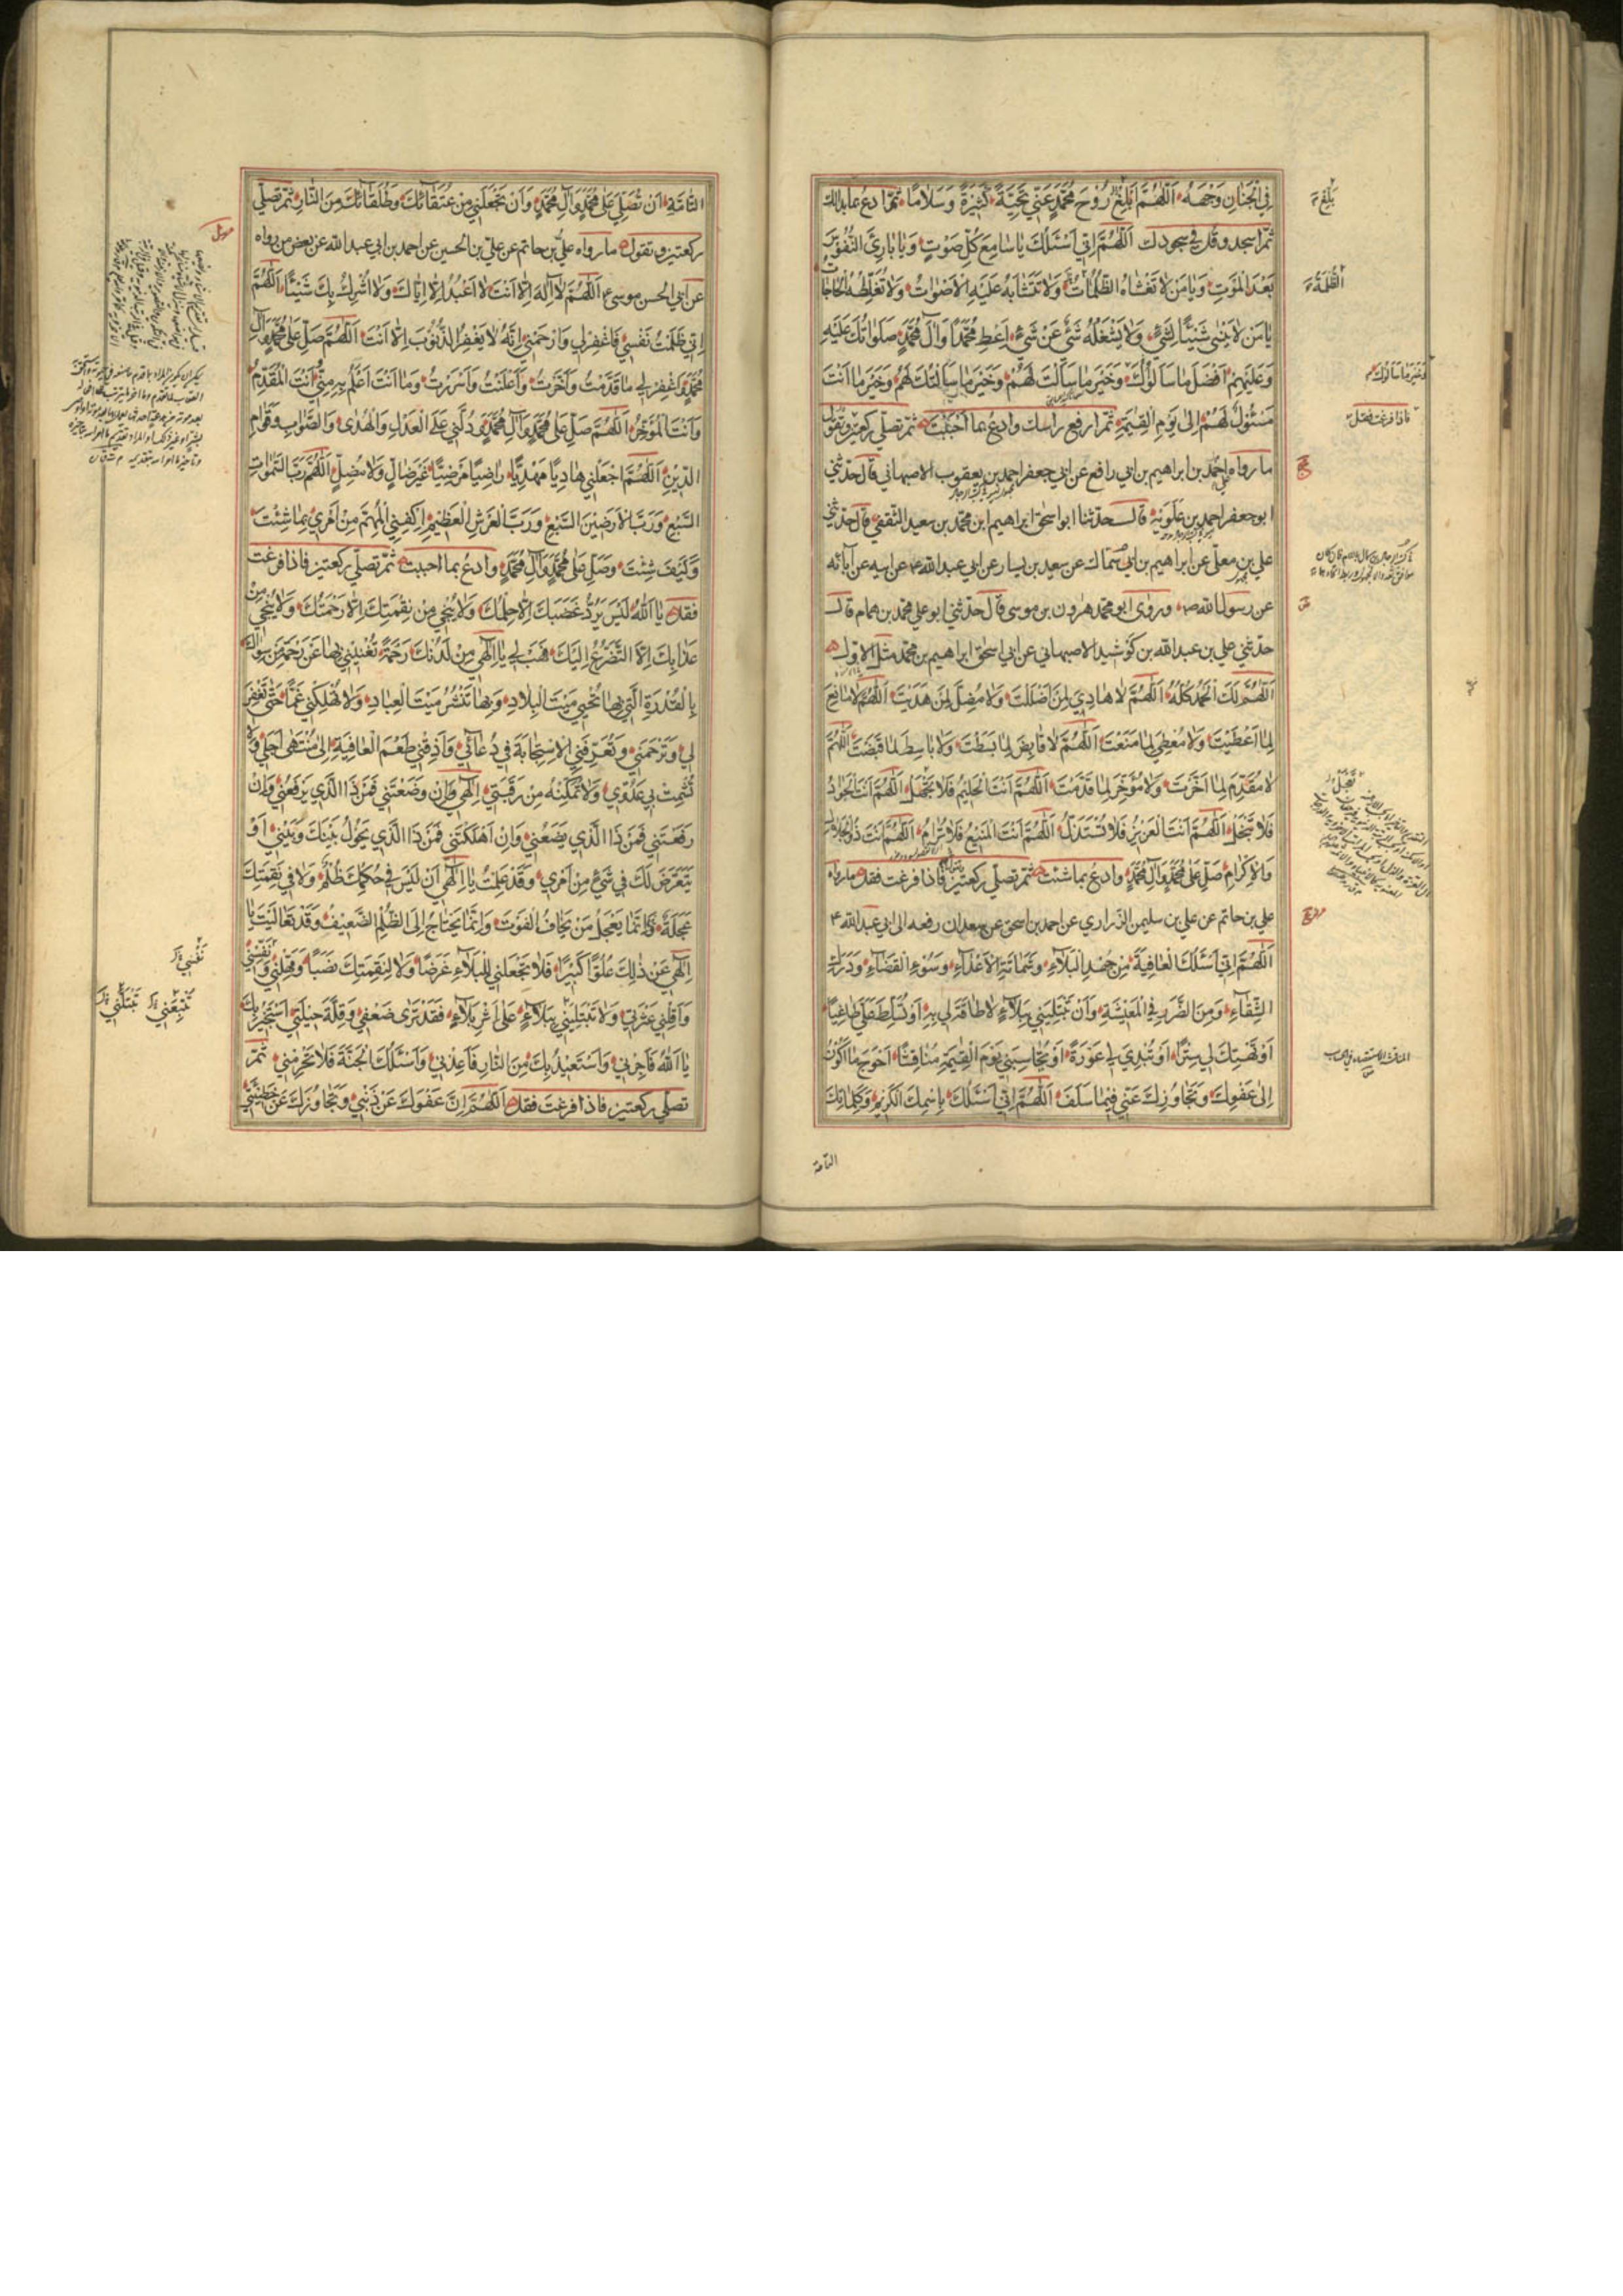 فِي الْجِنَانِ وَجْهَهُ اَللّٰهُمَّ اَبْلِغْ رُوحَ مُحَمَّدٍ عَنّي تَحِيَّةً كَثيرَةً وَسَلَامًا ثمّ ادع بما بدا لك
ثمّ اسجد وقل في سجودك اَللّٰهُمَّ اِنّي اَسْئَلُكَ يَا سَامِعَ كُلِّ صَوْتٍ وَيَا بَارِئَ النُّفُوسِ
بَعْدَ الْمَوْتِ وَيَا مَنْ لَا تَغْشَاهُ الظُّلُمَاتُ وَلَا تَتَشَابَهُ عَلَيْهِ الْاَصْوَاتُ وَلَا تُغَلِّطُهُ الْحَاجَاتُ
يَا مَنْ لَا يَنْسٰى شَيْئًا لِشَيْءٍ وَلَا يَشْغَلُهُ شَيْءٌ عَنْ شَيْءٍ اَعْطِ مُحَمَّدًا وَآلَ مُحَمَّدٍ صَلَوَاتُكَ عَلَيْهِ
وَعَلَيْهِمْ اَفْضَلَ مَا سَاَلُوكَ وَخَيْرَ مَا سَاَلَكَ لَهُمْ وَخَيْرَ مَا سَاَلْتُكَ لَهُمْ وَخَيْرَ مَا اَنْتَ
مَسْئُولٌ لَهُمْ اِلٰى يَوْمِ الْقِيٰمَةِ ثمّ ارفع راسك وادع بما اَحْبَبْتَ ثمّ تصلّي ركعتين وتقول
ما رواه احمد بن ابراهيم بن ابي رافع عن ابي جعفر احمد بن يعقوب الاصبهاني قال حدّثني
ابو جعفر احمد بن علويه قال حدّثنا ابو اسحق ابراهيم ابن محمّد بن سعيد الثقفي قال حدّثني
علي بن معلّى عن ابراهيم بن ابي سماك عن سعيد بن يسار عن ابي عبد الله عن ابيه عن آبائه
عن رسول الله ص وروى ابو محمّد هرون بن موسى قال حدّثني ابو علي محمّد بن همام قال
حدّثني علي بن عبد الله بن كوشيد الاصبهاني عن ابي اسحق ابراهيم بن محمّد مثل الاول
اَللّٰهُمَّ لَكَ الْحَمْدُ كُلُّهُ اَللّٰهُمَّ لَا هَادِيَ لِمَنْ اَضْلَلْتَ وَلَا مُضِلَّ لِمَنْ هَدَيْتَ اَللّٰهُمَّ لَا مَانِعَ
لِمَا اَعْطَيْتَ وَلَا مُعْطِيَ لِمَا مَنَعْتَ اَللّٰهُمَّ لَا قَابِضَ لِمَا بَسَطْتَ وَلَا بَاسِطَ لِمَا قَبَضْتَ اَللّٰهُمَّ
لَا مُقَدِّمَ لِمَا اَخَّرْتَ وَلَا مُؤَخِّرَ لِمَا قَدَّمْتَ اَللّٰهُمَّ اَنْتَ الْحَليمُ فَلَا تَجْهَلُ اَللّٰهُمَّ اَنْتَ الْجَوَادُ
فَلَا تَبْخَلُ اَللّٰهُمَّ اَنْتَ الْعَزيزُ فَلَا تُسْتَذَلُّ اَللّٰهُمَّ اَنْتَ الْمَنيعُ فَلَا تُرَامُ اَللّٰهُمَّ اَنْتَ ذُو الْجَلَالِ
وَالْاِكْرَامِ صَلِّ عَلٰى مُحَمَّدٍ وَآلِ مُحَمَّدٍ وادع بما شئت ثمّ تصلّي ركعتين فاذا فرغت فقل ما رواه
علي بن حاتم عن علي بن سليمن الزراري عن احمد بن اسحق عن سعدان رفعه الى ابي عبد الله ع
اَللّٰهُمَّ اِنّي اَسْئَلُكَ الْعَافِيَةَ مِنْ جُهْدِ الْبَلَاءِ وَشَمَاتَةِ الْاَعْدَاءِ وَسُوءِ الْقَضَاءِ وَدَرَكِ
الشَّقَاءِ وَمِنَ الضَّرَرِ فِي الْمَعيشَةِ وَاَنْ تَبْتَلِيَني بِبَلَاءٍ لَا طَاقَةَ لي بِهِ اَوْ تُسَلِّطَ عَلَيَّ طَاغِيًا
اَوْ تَهْتِكَ لي سِتْرًا اَوْ تُبْدِيَ لي عَوْرَةً اَوْ تُحَاسِبَني يَوْمَ الْقِيٰمَةِ مُنَاقِشًا اَحْوَجَ مَا اَكُونُ
اِلٰى عَفْوِكَ وَتَجَاوُزِكَ عَنّي فيمَا سَلَفَ اَللّٰهُمَّ اِنّي اَسْئَلُكَ بِاسْمِكَ الْكَريمِ وَكَلِمَاتِكَ
التامة
بَلِّغْ
الظُّلْمَةُ
وخير ما سالوك
فاذا فرغت فقل
التَّامَّةِ اَنْ تُصَلِّيَ عَلٰى مُحَمَّدٍ وَآلِ مُحَمَّدٍ وَاَنْ تَجْعَلَني مِنْ عُتَقَائِكَ وَطُلَقَائِكَ مِنَ النَّارِ ثمّ تصلّي
ركعتين وتقول ما رواه عليّ بن حاتم عن عليّ بن الحسين عن احمد بن ابي عبد الله عن بعض من رواه
عن ابي الحسن موسى ع اَللّٰهُمَّ لَا اِلٰهَ اِلَّا اَنْتَ لَا اَعْبُدُ اِلَّا اِيَّاكَ وَلَا اُشْرِكُ بِكَ شَيْئًا اَللّٰهُمَّ
اِنّي ظَلَمْتُ نَفْسي فَاغْفِرْ لي وَارْحَمْني اِنَّهُ لَا يَغْفِرُ الذُّنُوبَ اِلَّا اَنْتَ اَللّٰهُمَّ صَلِّ عَلٰى مُحَمَّدٍ وَآلِ
مُحَمَّدٍ وَاغْفِرْ لي مَا قَدَّمْتُ وَاَخَّرْتُ وَاَعْلَنْتُ وَاَسْرَرْتُ وَمَا اَنْتَ اَعْلَمُ بِهِ مِنّي اَنْتَ الْمُقَدِّمُ
وَاَنْتَ الْمُؤَخِّرُ اَللّٰهُمَّ صَلِّ عَلٰى مُحَمَّدٍ وَآلِ مُحَمَّدٍ وَدُلَّني عَلَى الْعَدْلِ وَالْهُدٰى وَالصَّوَابِ وَقِوَامِ
الدّينِ اَللّٰهُمَّ اجْعَلْني هَادِيًا مَهْدِيًّا رَاضِيًا مَرْضِيًّا غَيْرَ ضَالٍّ وَلَا مُضِلٍّ اَللّٰهُمَّ رَبَّ السَّمٰوَاتِ
السَّبْعِ وَرَبَّ الْاَرَضينَ السَّبْعِ وَرَبَّ الْعَرْشِ الْعَظيمِ اِكْفِنِي الْمُهِمَّ مِنْ اَمْري بِمَا شِئْتَ
وَكَيْفَ شِئْتَ وَصَلِّ عَلٰى مُحَمَّدٍ وَآلِ مُحَمَّدٍ وادع بما احببت ثمّ تصلّي ركعتين فاذا فرغت
فقل يَا اَللّٰهُ لَيْسَ يَرُدُّ غَضَبَكَ اِلَّا حِلْمُكَ وَلَا يُنْجي مِنْ نِقْمَتِكَ اِلَّا رَحْمَتُكَ وَلَا يُنْجي مِنْ
عَذَابِكَ اِلَّا التَّضَرُّعُ اِلَيْكَ فَهَبْ لي يَا اِلٰهي مِنْ لَدُنْكَ رَحْمَةً تُغْنيني بِهَا عَنْ رَحْمَةِ مَنْ سِوَاكَ
بِالْقُدْرَةِ الَّتي بِهَا تُحْيي مَيْتَ الْبِلَادِ وَبِهَا تَنْشُرُ مَيْتَ الْعِبَادِ وَلَا تُهْلِكْني غَمًّا حَتّٰى تَغْفِرَ
لي وَتَرْحَمَني وَتُعَرِّفَنِي الْاِسْتِجَابَةَ في دُعَائي وَاَذِقْني طَعْمَ الْعَافِيَةِ اِلٰى مُنْتَهٰى اَجَلي وَلَا
تُشْمِتْ بي عَدُوّي وَلَا تُمَكِّنْهُ مِنْ رَقَبَتي اِلٰهي وَاِنْ وَضَعْتَني فَمَنْ ذَا الَّذي يَرْفَعُني وَاِنْ
رَفَعْتَني فَمَنْ ذَا الَّذي يَضَعُني وَاِنْ اَهْلَكْتَني فَمَنْ ذَا الَّذي يَحُولُ بَيْنَكَ وَبَيْني اَوْ
يَتَعَرَّضُ لَكَ في شَيْءٍ مِنْ اَمْري وَقَدْ عَلِمْتُ يَا اِلٰهي اَنْ لَيْسَ في حُكْمِكَ ظُلْمٌ وَلَا في نَقِمَتِكَ
عَجَلَةٌ وَاِنَّمَا يَعْجَلُ مَنْ يَخَافُ الْفَوْتَ وَاِنَّمَا يَحْتَاجُ اِلَى الظُّلْمِ الضَّعيفُ وَقَدْ تَعَالَيْتَ يَا
اِلٰهي عَنْ ذٰلِكَ عُلُوًّا كَبيرًا فَلَا تَجْعَلْني لِلْبَلَاءِ غَرَضًا وَلَا لِنَقِمَتِكَ نَصَبًا وَمَهِّلْني وَنَفِّسْني
وَاَقِلْني عَثْرَتي وَلَا تَبْتَلِيَنّي بِبَلَاءٍ عَلٰى اَثَرِ بَلَاءٍ فَقَدْ تَرٰى ضَعْفي وَقِلَّةَ حيلَتي اَسْتَجيرُ بِكَ
يَا اَللّٰهُ فَاَجِرْني وَاَسْتَعيذُ بِكَ مِنَ النَّارِ فَاَعِذْني وَاَسْئَلُكَ الْجَنَّةَ فَلَا تَحْرِمْني ثمّ
تصلّي ركعتين فاذا فرغت فقل اَللّٰهُمَّ اِنَّ عَفْوَكَ عَنْ ذَنْبي وَتَجَاوُزَكَ عَنْ خَطيئَتي